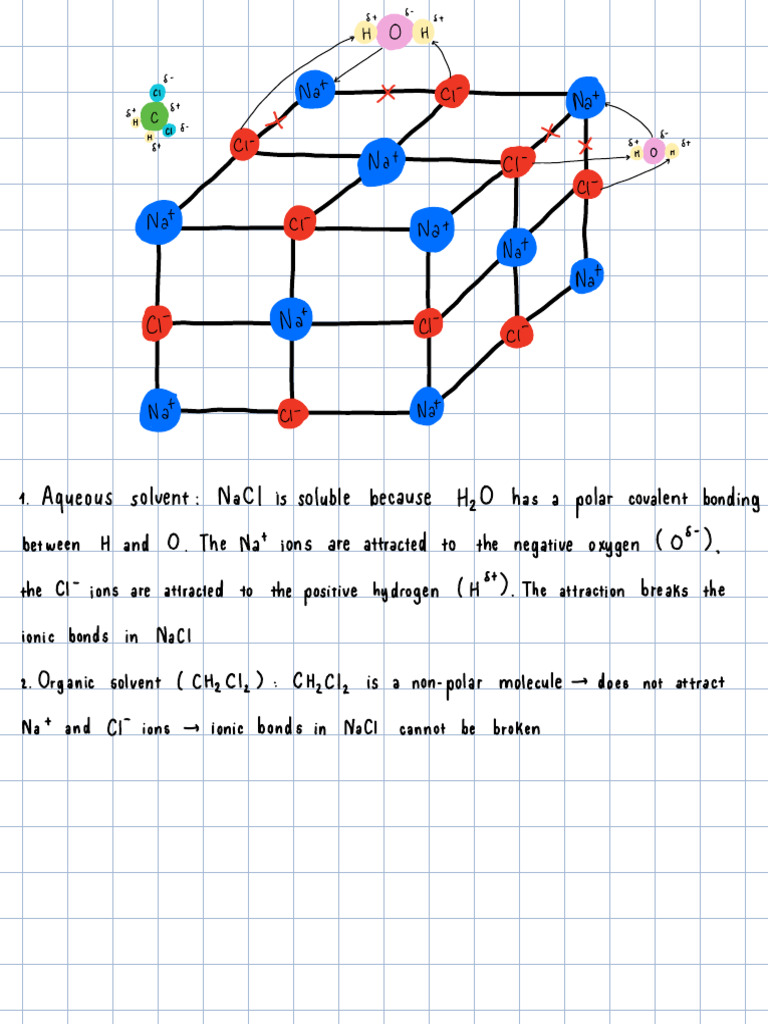 δ-
δ+ δ+
H O H
Na+ Cl- Na+
δ-
Cl
δ+ C δ+
H Cl δ-
H
δ+
Cl- Na+ Cl-
δ-
δ+ δ+
H O H
Cl-
Na+ Cl- Na+ Na+
Na+
Cl- Na+ Cl- Cl-
Na+ Cl- Na+
1. Aqueous solvent : NaCl is soluble because H₂O has a polar covalent bonding
between H and O. The Na⁺ ions are attracted to the negative oxygen (Oᵟ⁻),
the Cl⁻ ions are attracted to the positive hydrogen (Hᵟ⁺). The attraction breaks the
ionic bonds in NaCl
2. Organic solvent (CH₂Cl₂) : CH₂Cl₂ is a non-polar molecule → does not attract
Na⁺ and Cl⁻ ions → ionic bonds in NaCl cannot be broken